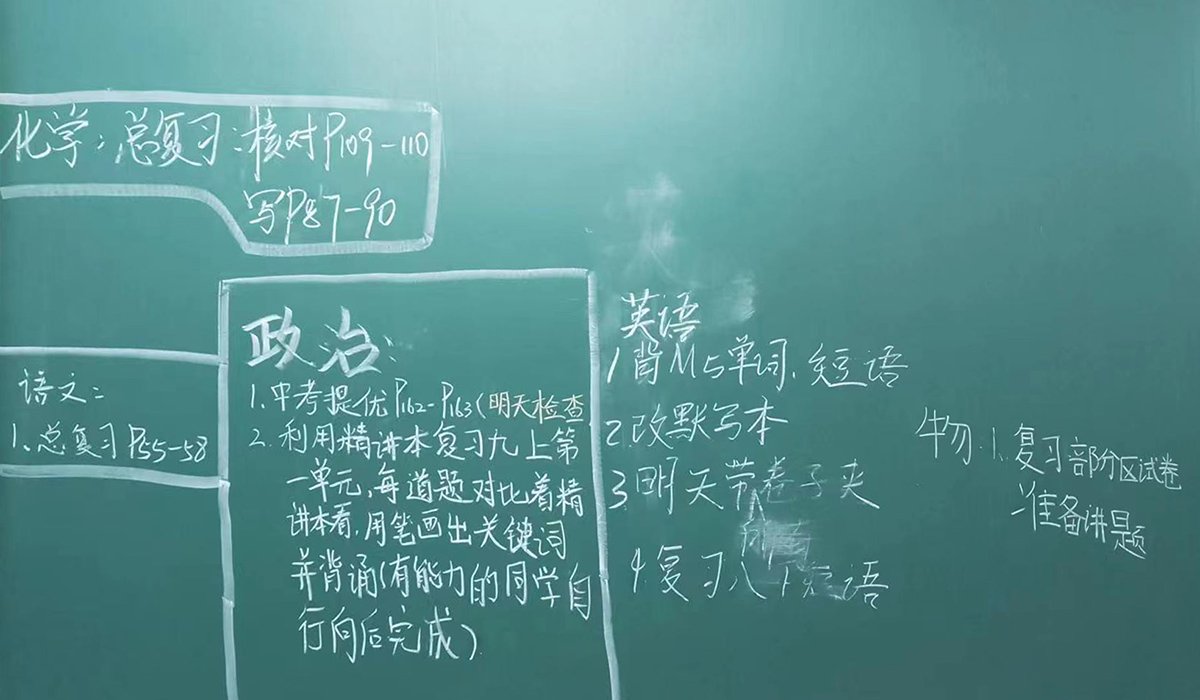 化学:总复习:核对P109-110
写P87-90
语文:
1.总复习P55-58
政治:
1.中考提优P162-P163(明天检查
2.利用精讲本复习九上第
一单元,每道题对比着精
讲本看,用笔画出关键词
并背诵(有能力的同学自
行向后完成)
英语
1背M5单词、短语
2.改默写本
3明天带卷子夹
4.复习八下短语
物:1.复习部分区试卷
准备讲题